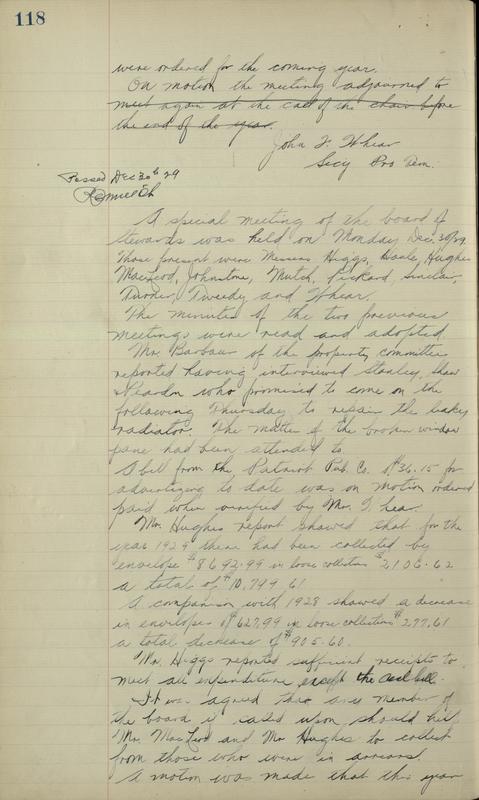 118
were ordered for the coming year.
On motion the meeting adjourned to
meet again at the call of the chair before
the end of the year.
John F. Whear
Secy Pro Tem.
Passed Dec 30th 29
A special meeting of the board of
Stewards was held on Monday Dec. 30/29.
Those present were Messrs Higgs, Hughes
MacLeod, Johnstone, Mutch, Pickard, Sinclair,
Turner, Tweedy and Whear.
The minutes of the two previous
meetings were read and adopted.
Mr. Barbour of the property committee
reported having interviewed Stanley, Shaw
& Peardon who promised to come on the
following Thursday to repair the leaky
radiator. The matter of the broken window
pane had been attended to.
A bill from the Patriot Pub. Co. of $36.15 for
advertizing to date was on motion ordered
paid when verified by Mr. Whear.
Mr. Hughes report showed that for the
year 1929 there had been collected by
envelope $8642.99 in loose collections $2106.62
a total of $10,749.61
A comparison with 1928 showed a decrease
in envelopes of $627.99 in loose collections $277.61
a total decrease of $905.60.
Mr. Higgs reported sufficient receipts to
meet all expenditure except the coal bill.
It was agreed that any member of
the board if called upon should help
Mr. MacLeod and Mr Hughes to collect
from those who were in arrears.
A motion was made that this year